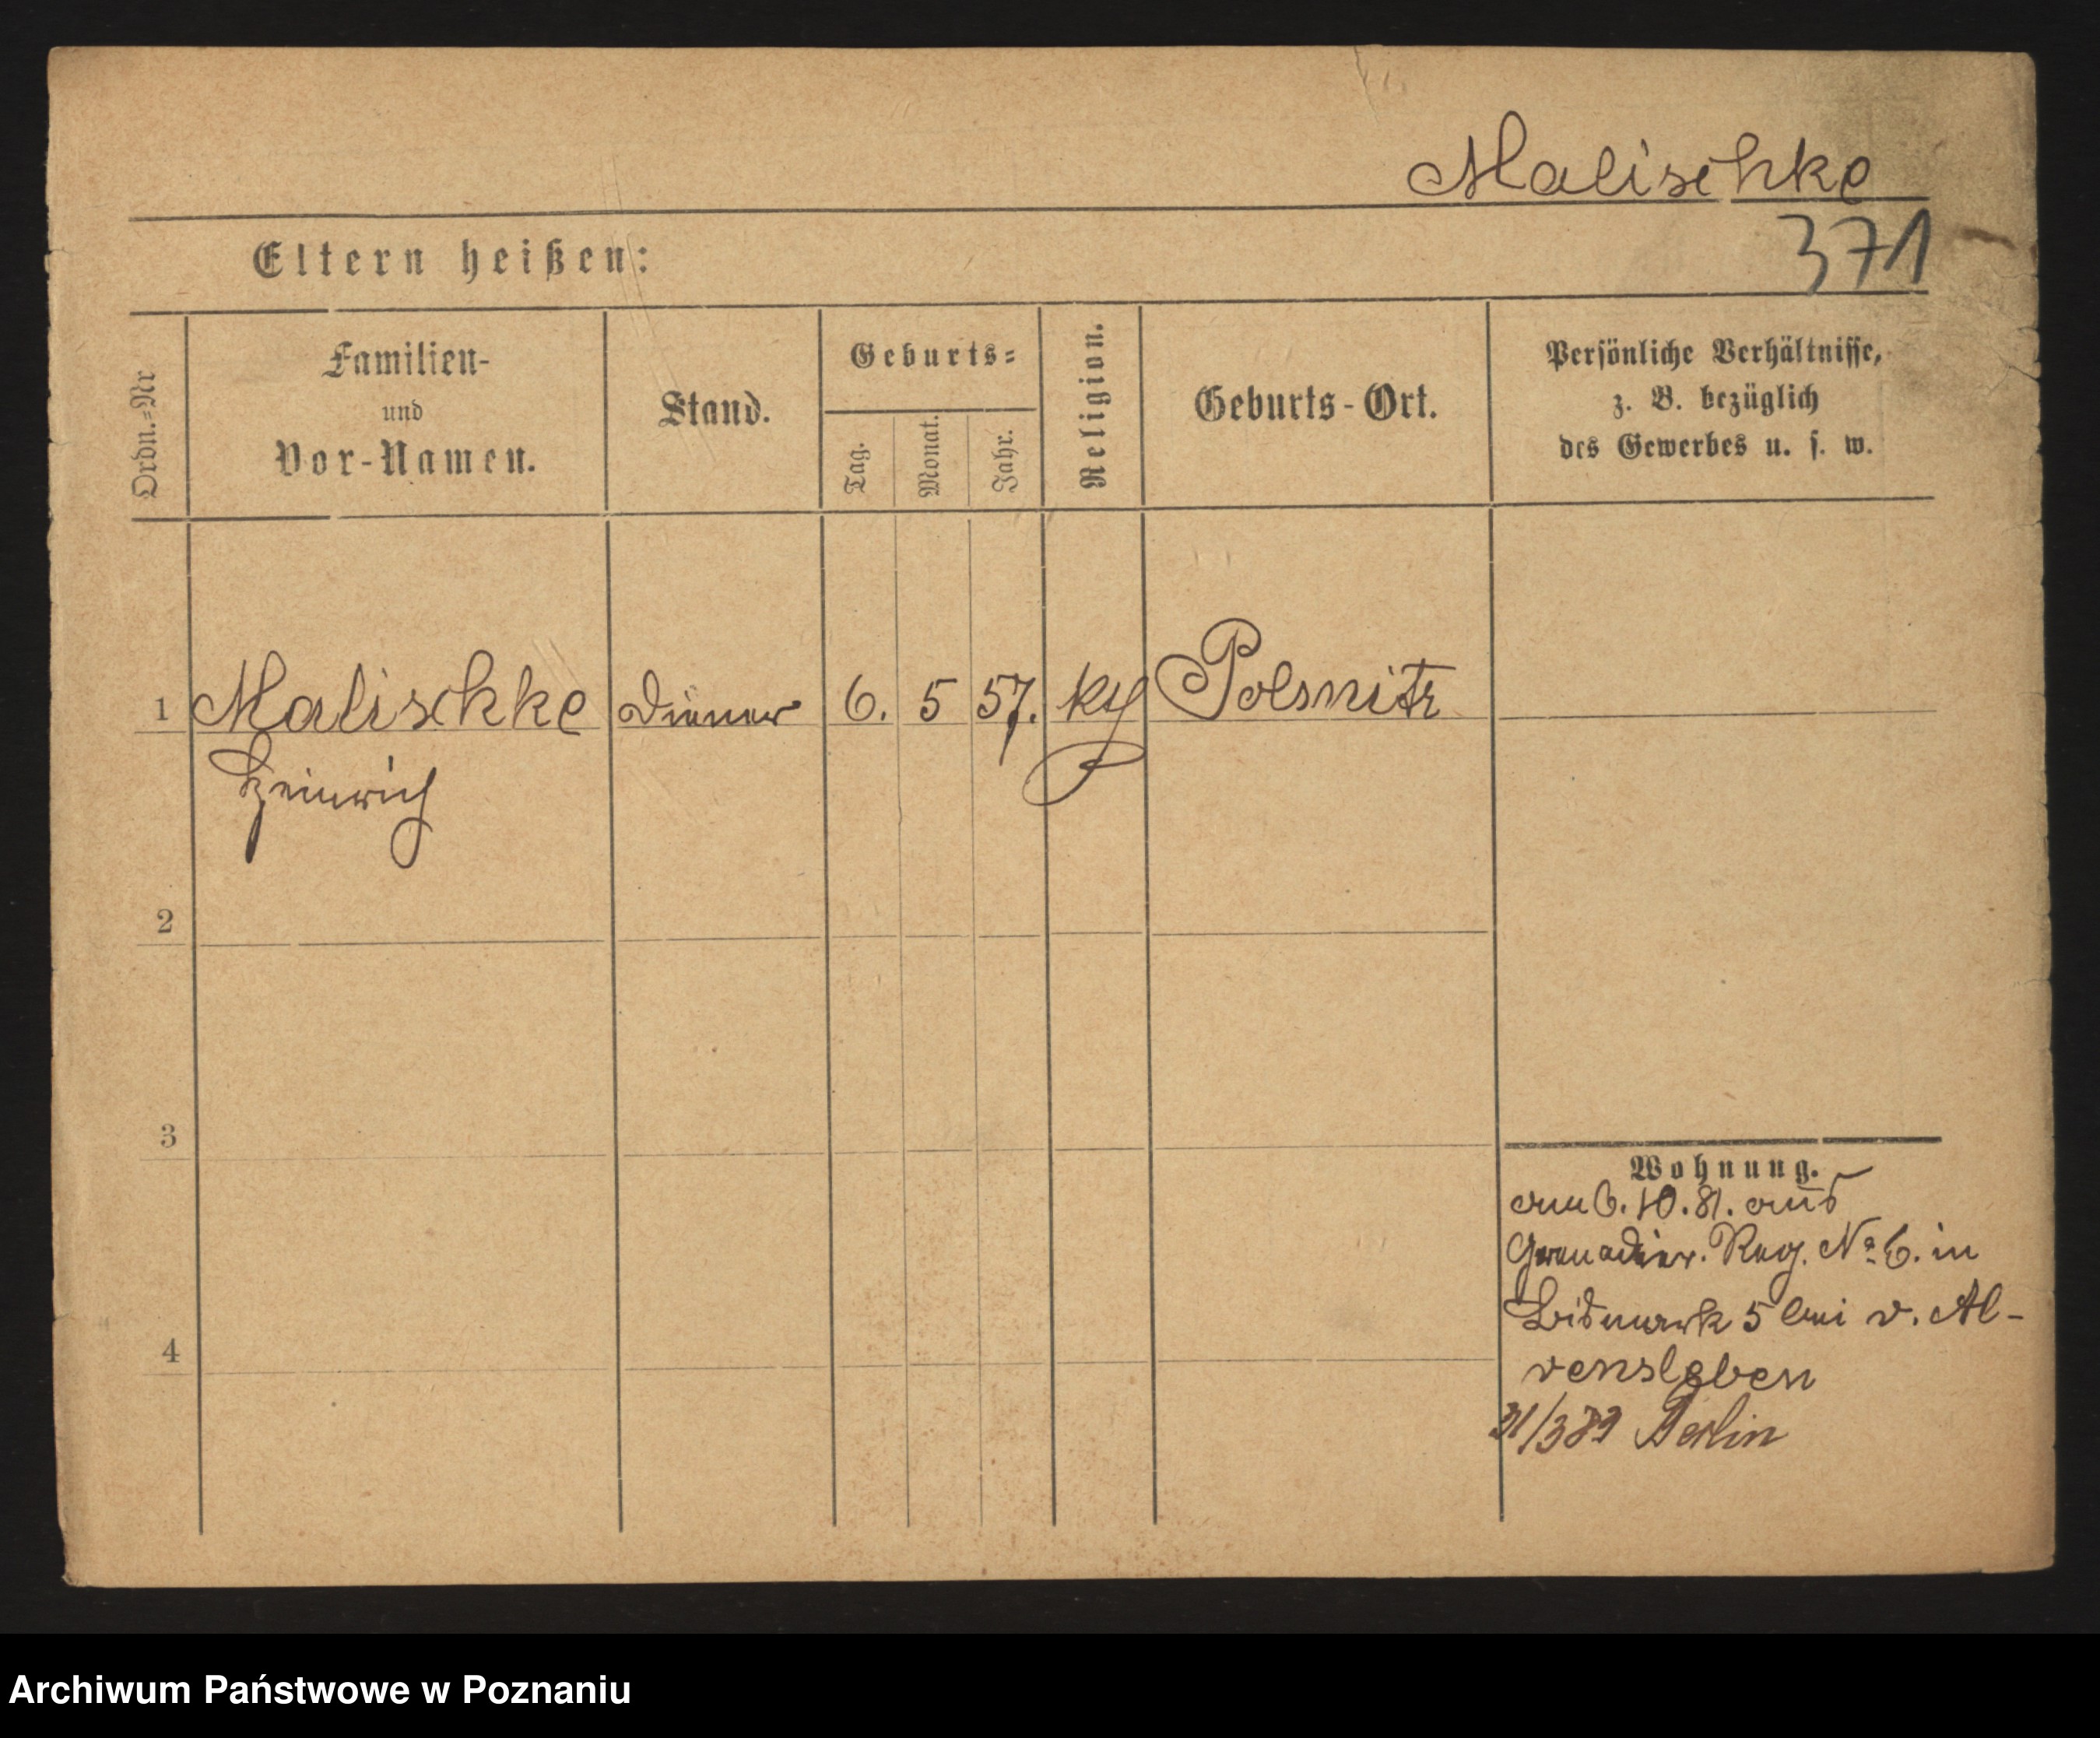 Malischke
371
Eltern heißen:
Ordn.=Nr
Familien-
und
Vor-Namen.
Stand.
Geburts=
Tag.
Monat.
Jahr.
Religion.
Geburts-Ort.
Persönliche Verhältnisse,
z. B. bezüglich
des Gewerbes u. s. w.
1 Malischke Diener 6. 5 57. Polsnitz
Heinrich
2
3
4
Wohnung.
am 6. 10. 81. aus
Grenadier. Reg. No 6. in
Bismark 5 bei v. Al-
vensleben
31/3 89 Berlin
Archiwum Państwowe w Poznaniu